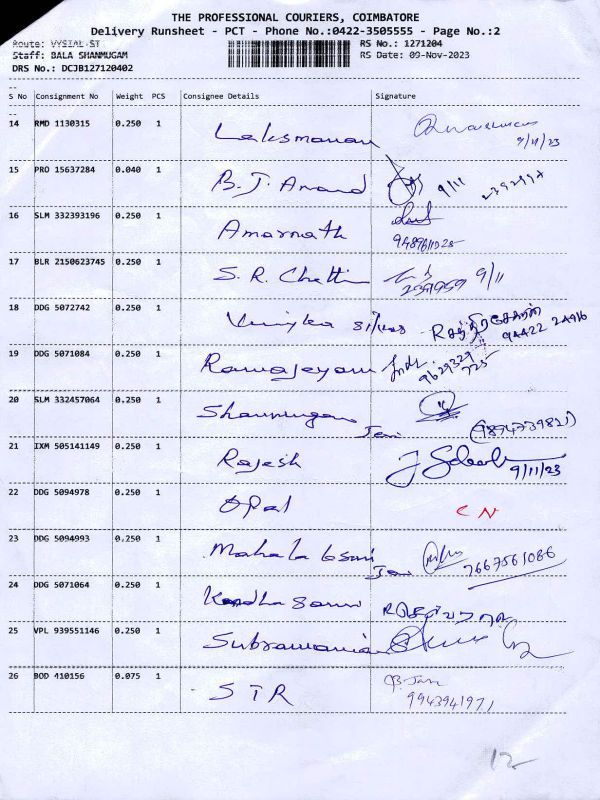 THE PROFESSIONAL COURIERS, COIMBATORE
Delivery Runsheet - PCT - Phone No.:0422-3505555 - Page No.:2
Route: VYSIAL ST RS No.: 1271204
Staff: BALA SHANMUGAM RS Date: 09-Nov-2023
DRS No.: DCJB127120402
S No Consignment No Weight PCS Consignee Details Signature
14 RMD 1130315 0.250 1 Laksmanan
9/11/23
15 PRO 15637284 0.040 1 B. J. Anand 9/11
16 SLM 332393196 0.250 1 Amarnath
17 BLR 2150623745 0.250 1 S. R. Chetti 9/11
18 DDG 5072742 0.250 1
94422 24916
19 DDG 5071084 0.250 1 Ramajeyam
9629329
725
20 SLM 332457064 0.250 1 Shanmugam
(9894739821)
21 IXM 505141149 0.250 1 Rajesh
9/11/23
22 DDG 5094978 0.250 1 Opal CN
23 DDG 5094993 0.250 1 7667561086
24 DDG 5071064 0.250 1 Kandhasami
25 VPL 939551146 0.250 1 Subramanian
26 BOD 410156 0.075 1 STR
9943941971
12